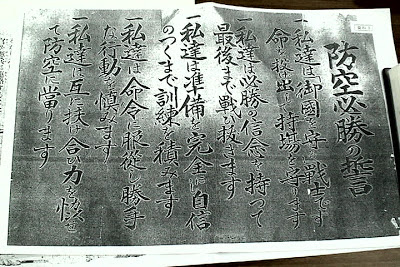 防空必勝の誓
一私達は御國を守る戰士です
命を投出して持場を守ります
一私達は必勝の信念を持つて
最後まで戰ひ拔きます
一私達は準備を完全に自信
のつくまで訓練を積みます
一私達は命令に服從し勝手
な行動を愼みます
一私達は互に扶け合い力を協せ
て防空に當ります